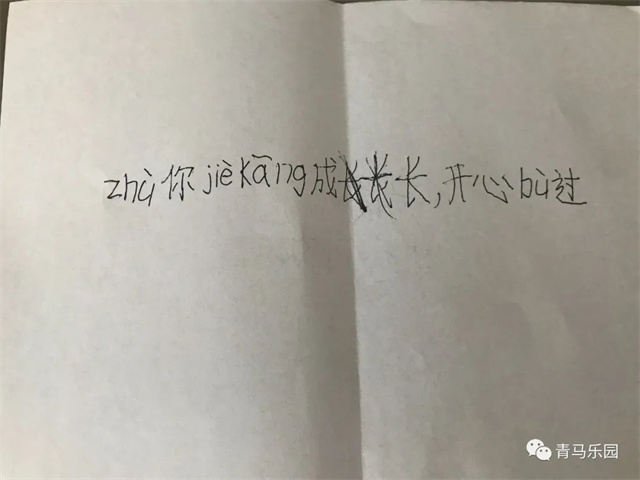 zhù你jièkāng成长,开心bù过
青马乐园